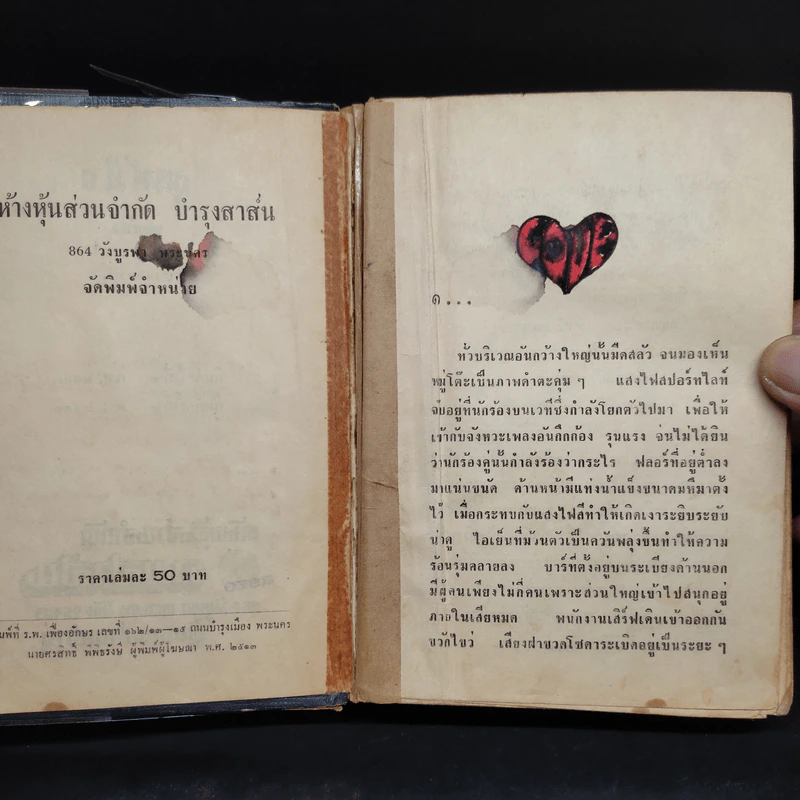 ห้างหุ้นส่วนจำกัด บำรุงสาส์น
864 วังบูรพา พระนคร
จัดพิมพ์จำหน่าย
ราคาเล่มละ 50 บาท
พิมพ์ที่ ร.พ. เฟื่องอักษร เลขที่ ๑๖๒/๑๓—๑๕ ถนนบำรุงเมือง พระนคร
นายศรสิทธิ์ พิพิธรังษี ผู้พิมพ์ผู้โฆษณา พ.ศ. ๒๕๑๓
LOVE
๑...
ทั่วบริเวณอันกว้างใหญ่นั้นมืดสลัว จนมองเห็น
หมู่โต๊ะเป็นภาพดำตะคุ่ม ๆ แสงไฟสปอร์ทไลท์
จับอยู่ที่นักร้องบนเวทีซึ่งกำลังโยกตัวไปมา เพื่อให้
เข้ากับจังหวะเพลงอันกึกก้อง รุนแรง จนไม่ได้ยิน
ว่านักร้องคู่นั้นกำลังร้องว่ากระไร ฟลอร์ที่อยู่ต่ำลง
มาแน่นขนัด ด้านหน้ามีแท่งน้ำแข็งขนาดมหึมาตั้ง
ไว้ เมื่อกระทบกับแสงไฟสีทำให้เกิดเงาระยิบระยับ
น่าดู ไอเย็นที่ม้วนตัวเป็นควันพลุ่งขึ้นทำให้ความ
ร้อนรุ่มคลายลง บาร์ที่ตั้งอยู่บนระเบียงด้านนอก
มีผู้คนเพียงไม่กี่คนเพราะส่วนใหญ่เข้าไปสนุกอยู่
ภายในเสียหมด พนักงานเสิร์ฟเดินเข้าออกกัน
ขวักไขว่ เสียงฝาขวดโซดาระเบิดอยู่เป็นระยะ ๆ